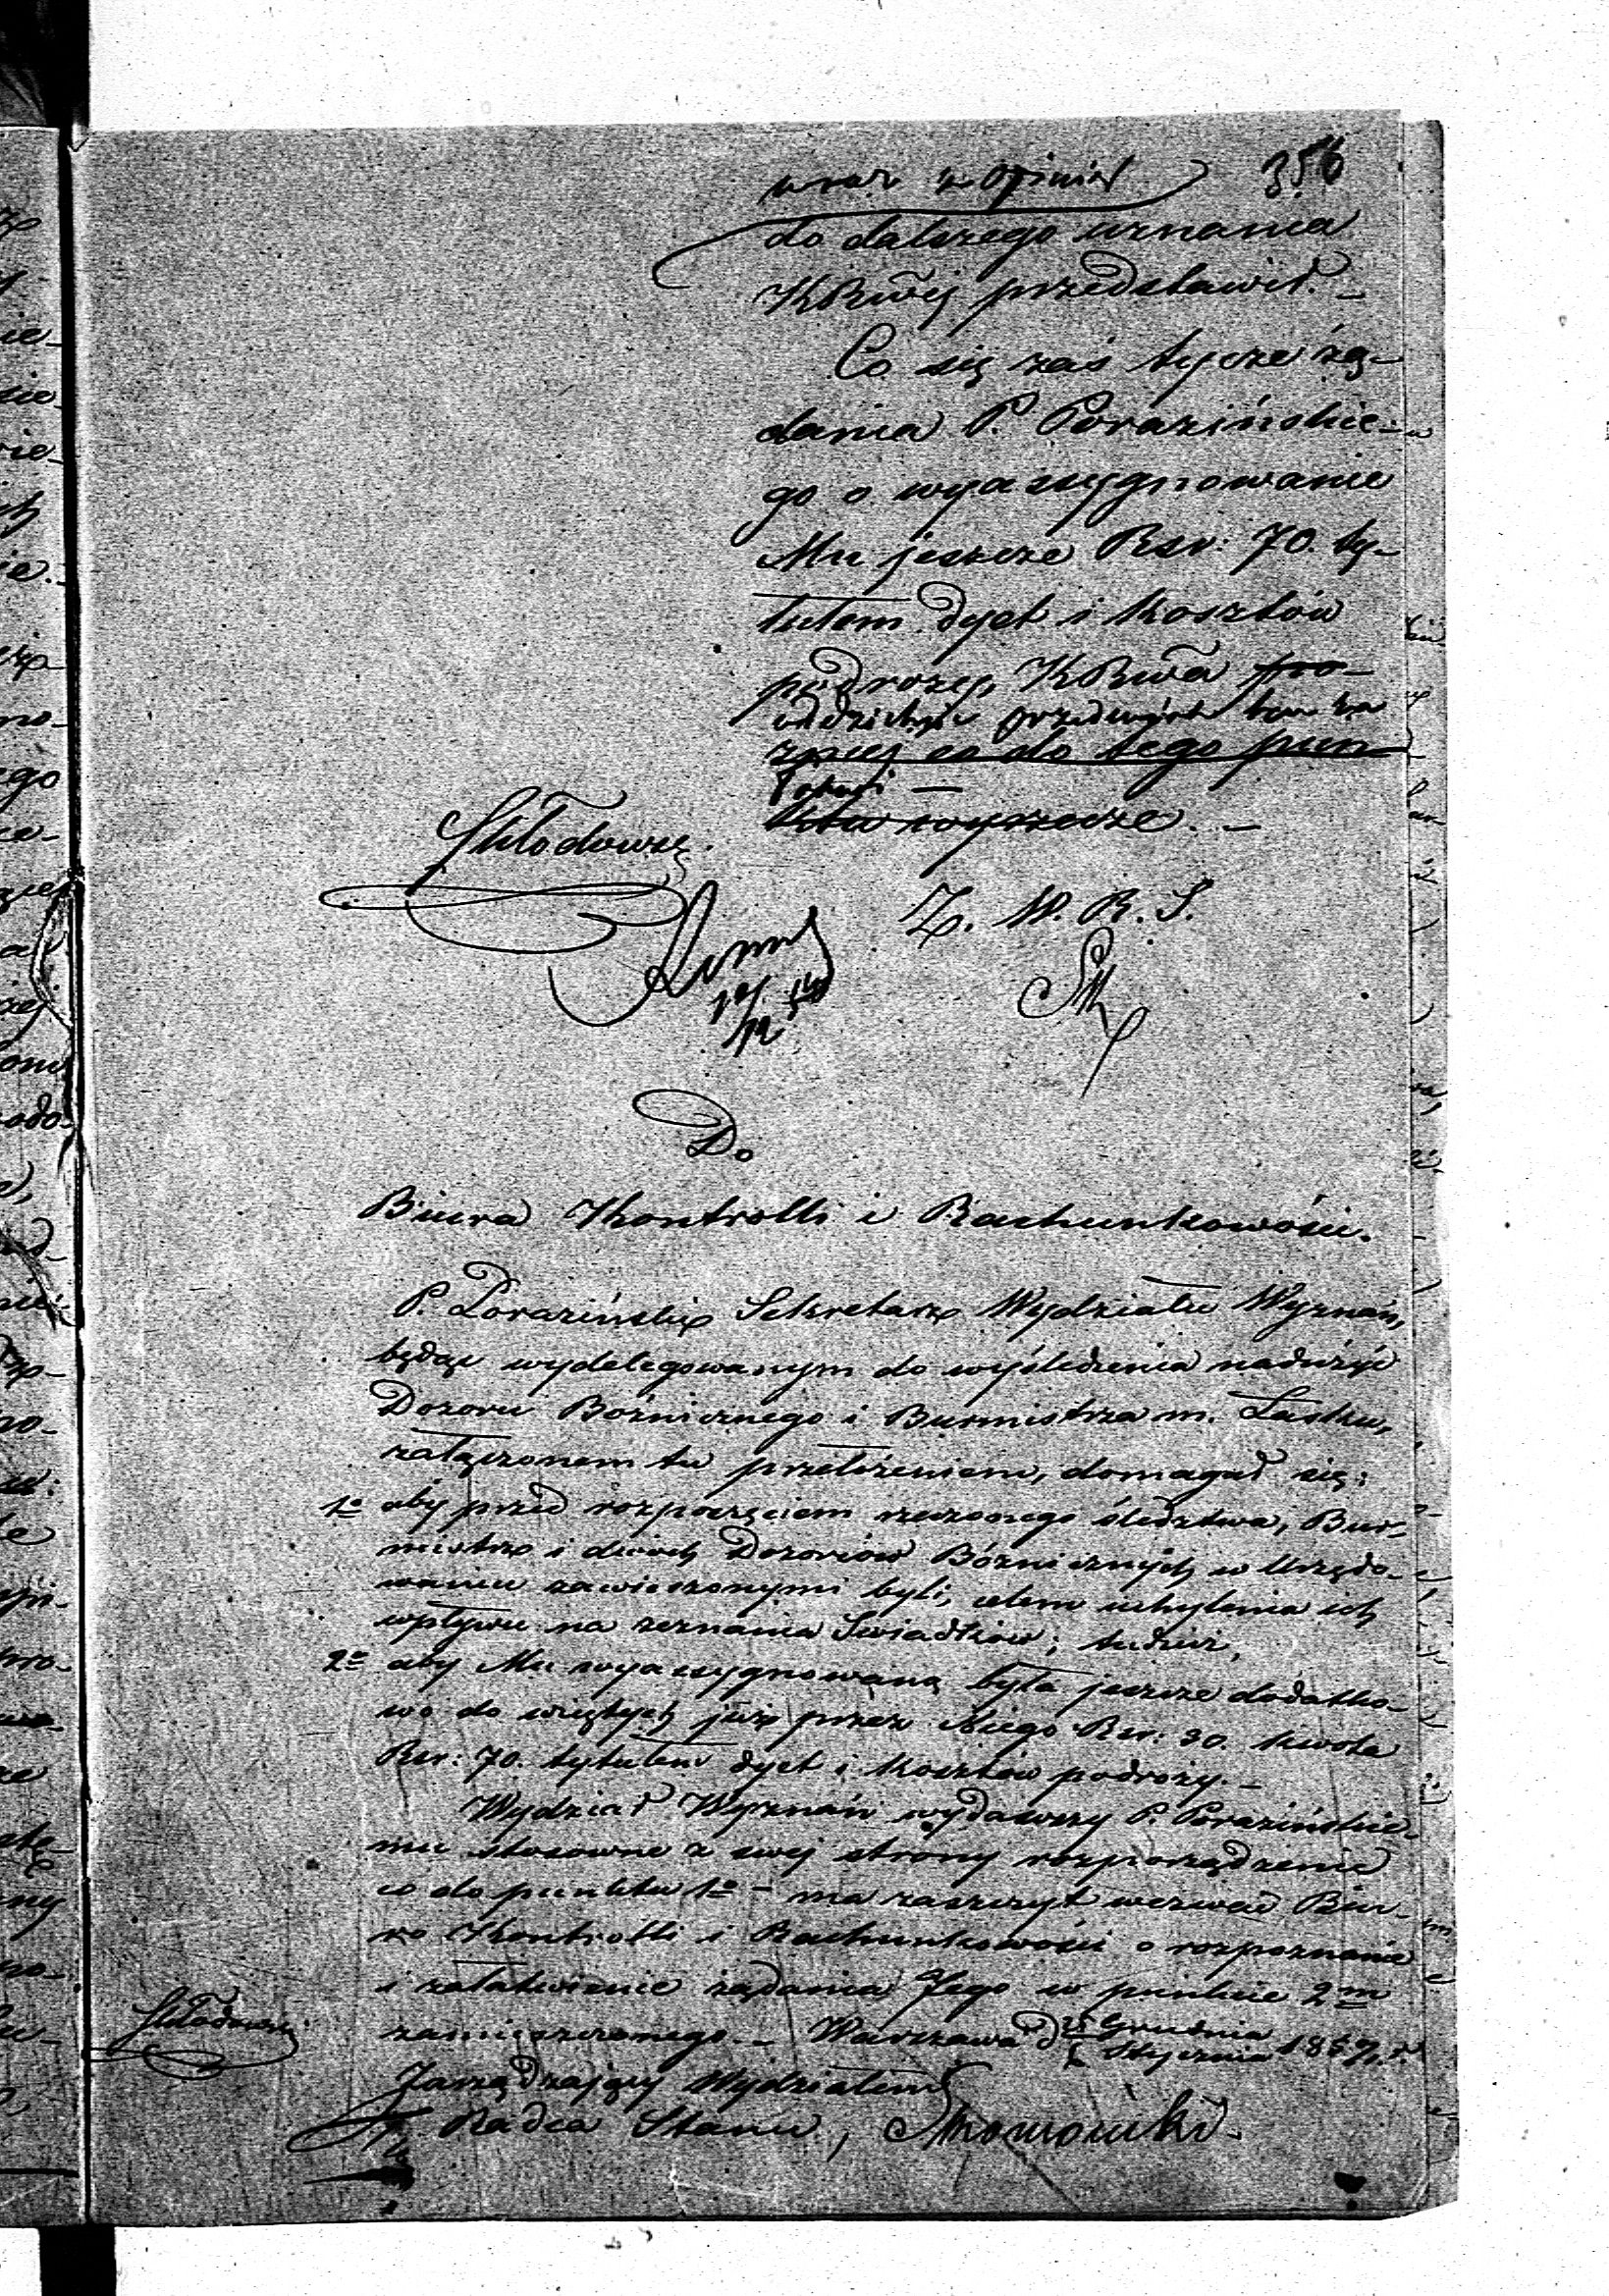 356
wraz z opinią
do dalszego uznania
KRwej przedstawił. –
Co się zaś tycze żą-
dania P. Porazińskie-
go o wyasygnowanie
Mu jeszcze Rsr: 70. ty-
tułem dyet i kosztów
podroży, KRwa
oddzielnie
rzniej co do tego pun
ktu wyrzecze. –
Skłodowski
Z. W. R. S.
Do
Biura Kontrolli i Rachunkowości.
P. Poraziński Sekretarz Wydziału Wyznań,
będąc wydelegowanym do wyśledzenia nadużyć
Dozoru Bóżniczego i Burmistrza m. Łasku,
załączonem tu przełożeniem, domagał się:
1o aby przed rozpoczęciem rzeczonego śledztwa, Bur-
mistrz i dwóch Dozorców Bóżnicznych w Urzędo-
waniu zawieszonymi byli, celem uchylenia ich
wpływu na zeznania Swiadków; tudzież,
2o aby Mu wyasygnowaną była jeszcze dodatko-
wo do wziętych już przez Niego Rsr: 30. kwota
Rsr: 70. tytułem dyet i kosztów podroży. –
Wydział Wyznań wydawszy P. Porazińskie-
mu stosowne z swej strony rozporządzenie
co do punktu 1o – ma zaszczyt wezwać Biu-
ro Kontrolli i Rachunkowości o rozpoznanie
i załatwienie żądania Jego w punkcie 2m
zamieszczonego. – Warszawa d. Grudnia
Stycznia 1857 r.
Skłodowski
Zarządzający Wydziałem
Radca Stanu,